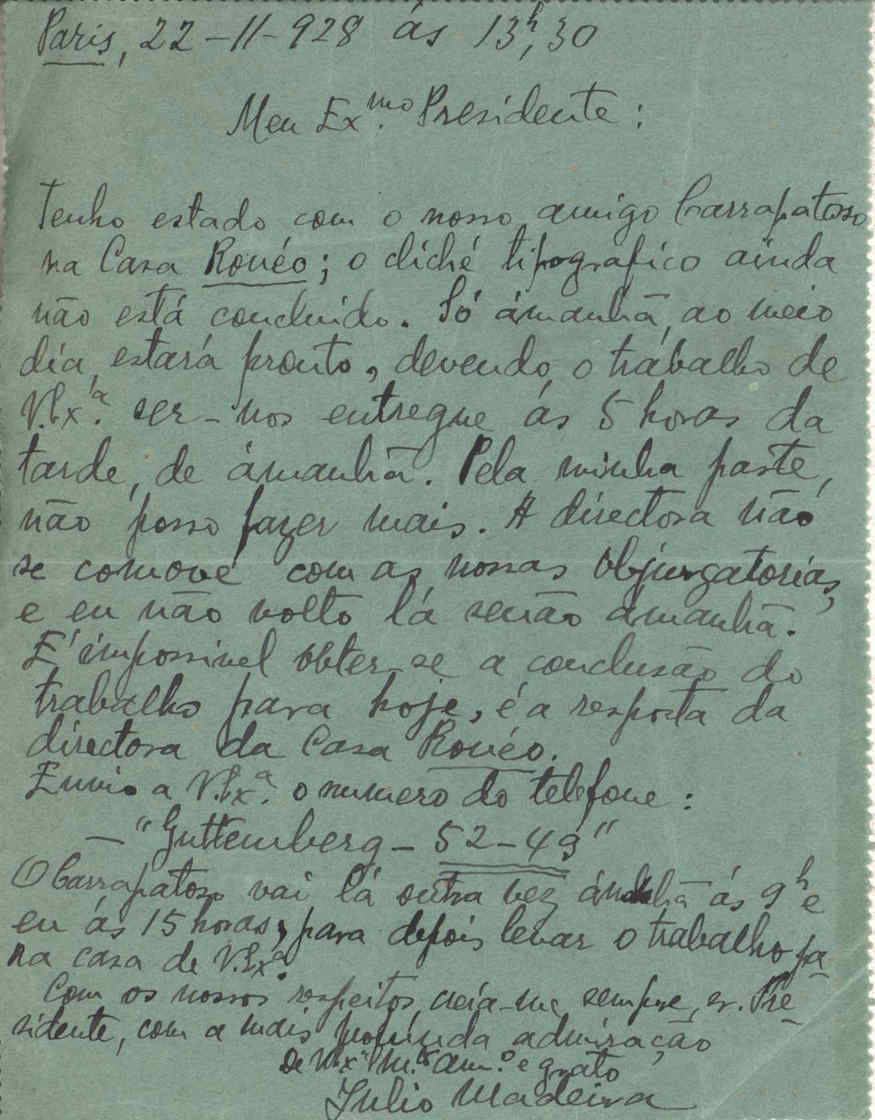 Paris, 22-11-928 ás 13h,30
Meu Exmo. Presidente:
Tenho estado com o nosso amigo Carrapatoso
na Casa Ronéo; o cliché tipografico ainda
não está concluido. Só ámanhã, ao meio
dia, estará pronto, devendo, o trabalho de
V.Exª. ser-nos entregue ás 5 horas da
tarde, de ámanhã. Pela minha parte,
não posso fazer mais. A directora não
se comove com as nossas objurgatorias,
e eu não volto lá senão ámanhã.
E' impossivel obter-se a conclusão do
trabalho para hoje, é a resposta da
directora da Casa Ronéo.
Envio a V.Exª. o numero do telefone:
— "Guttemberg - 52-49"
O Carrapatoso vai lá outra vez ámanhã ás 9h e
eu ás 15 horas, para depois levar o trabalho pa-
ra casa de V.Exª.
Com os nossos respeitos, creia-me sempre, sr. Pre-
sidente, com a mais profunda admiração
De V.Exª M.to am.º e grato
Julio Madeira